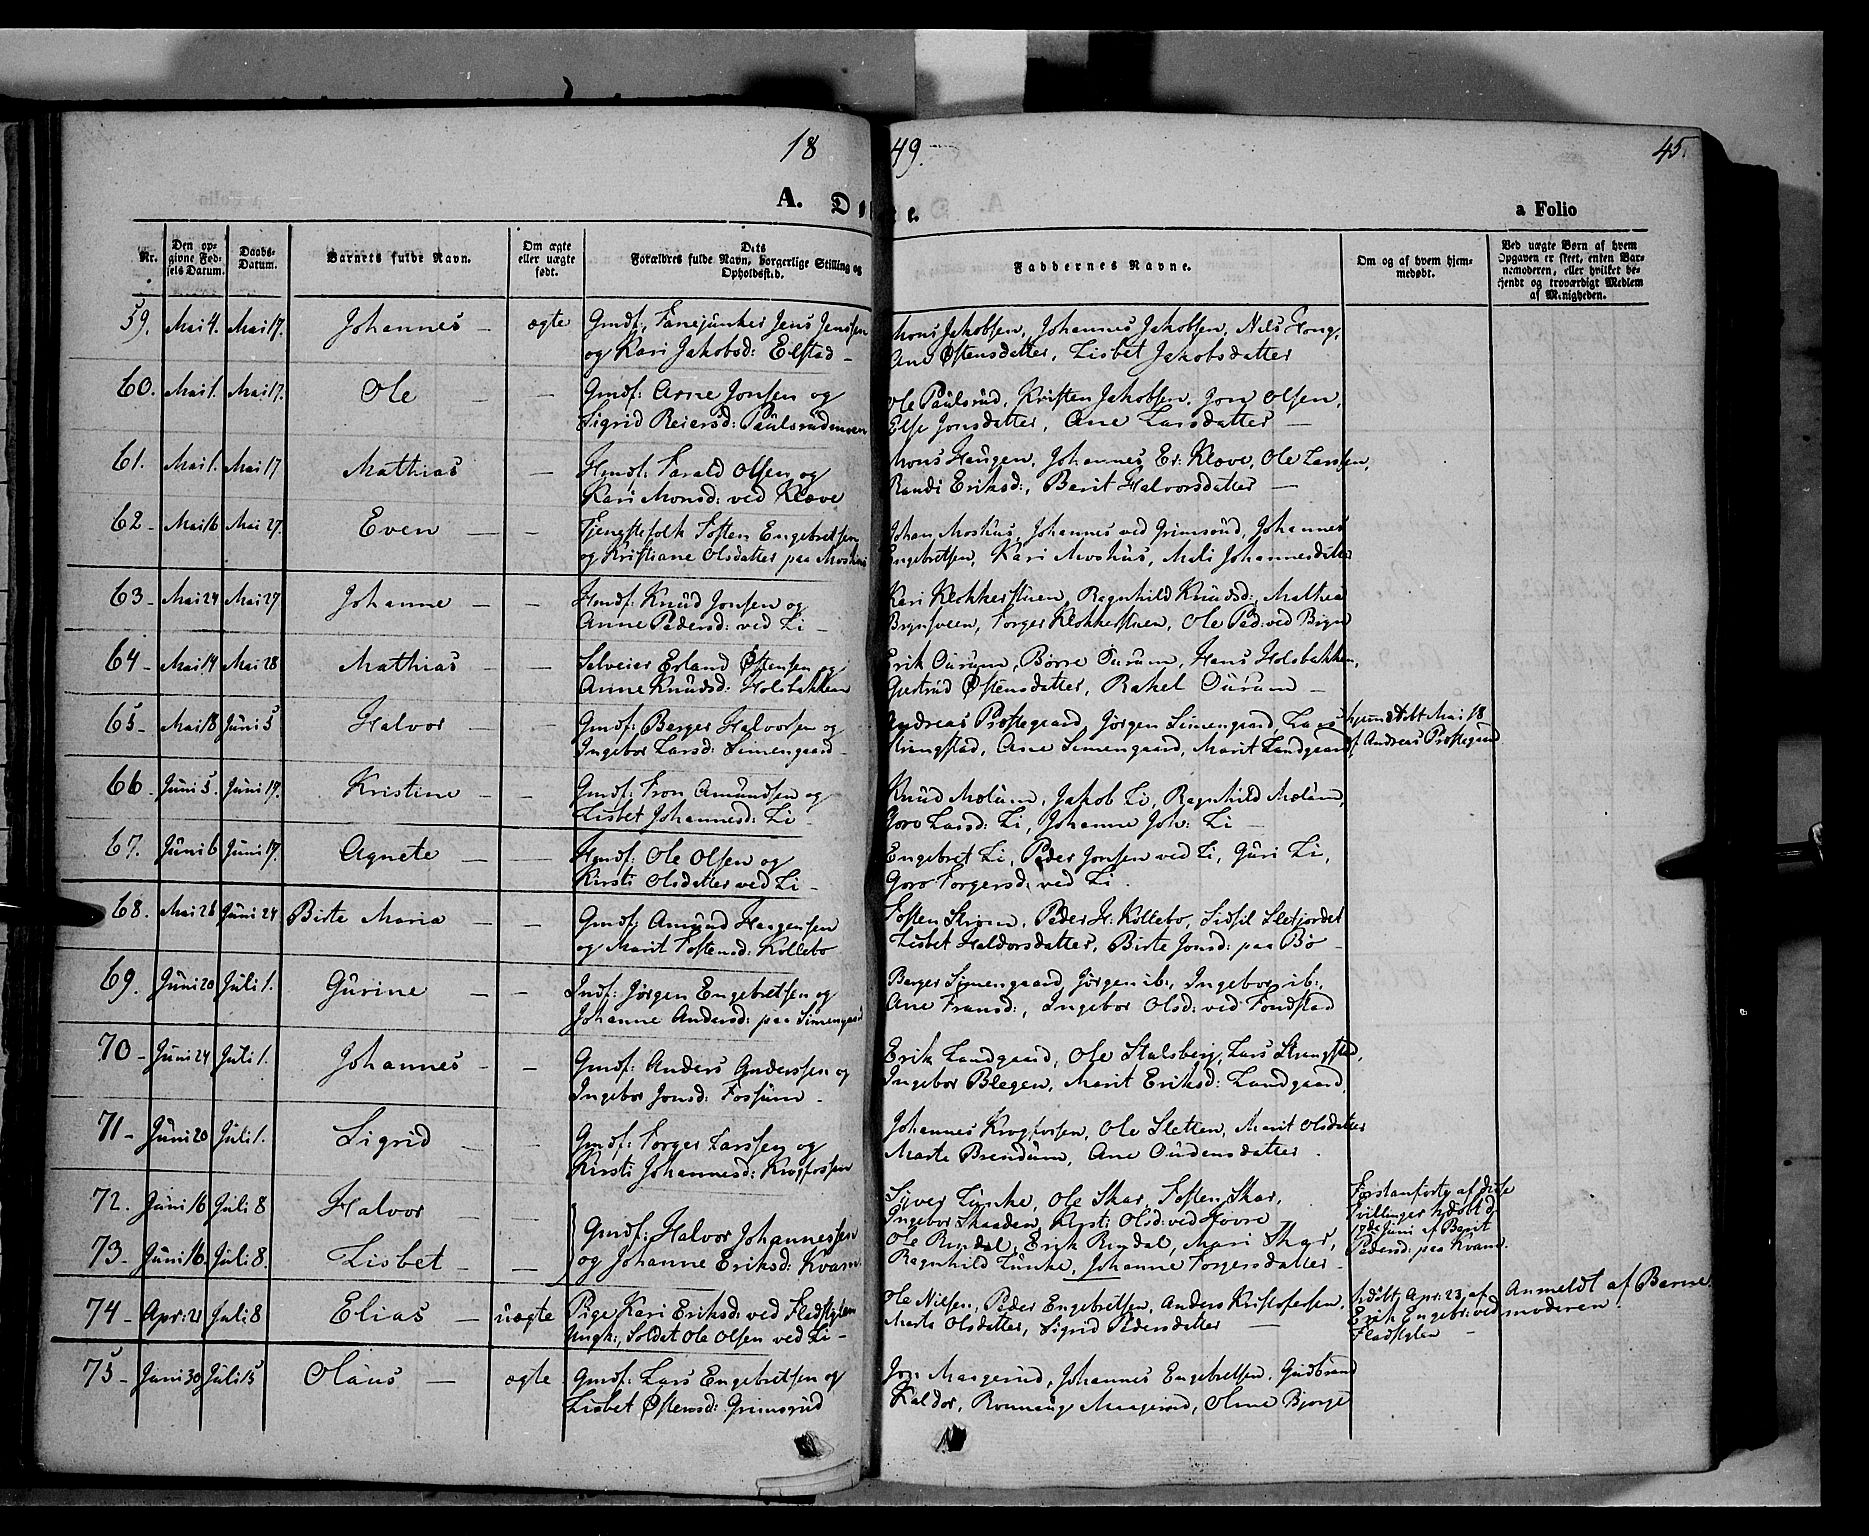 1849.
45.
A. Døbte.
a Folio
Nr.
Den opgivne Fødsels Datum.
Daabs-Datum.
Barnets fulde Navn.
Om ægte eller uægte født.
Dets Forældres fulde Navn, borgerlige Stilling og Opholdssted.
Faddernes Navne.
Om og af hvem hjemmedøbt.
Ved uægte Børn af hvem Opgaven er skeet, enten Barnemoderen, eller hvilket bekjendt og troværdigt Medlem af Menigheden.
59. Mai 4. Mai 17. Johannes – ægte Gmdf. Fanejunker Jens Jenssen Mons Jakobsen, Johannes Jakobsen, Nils
og Kari Jakobsd: Elstad – Ane Østensdatter, Lisbet Jakobsdatter
60. Mai 1. Mai 17. Ole – – Gmdf: Arne Jonsen og Ole Paulsrud, Kristen Jakobsen, Jon Olsen,
Sigrid Reiersd: Paulsrudmoen Else Jonsdatter, Ane Larsdatter –
61. Mai 1. Mai 17 Mathias – Hmdf: Tarald Olsen og Mons Haugen, Johannes Er. Kleve, Ole Larssen,
Kari Monsd: ved Kleve Randi Eriksd:, Berit Halvorsdatter –
62 – Mai 16 Mai 27. Even – – Tjenestefolk Tosten Engebretsen Johan Moshus, Johannes ved Grimsrud, Johannes
og Kristiane Olsdatter paa Moshus Engebretsen, Kari Moshus, Mali Johannesdatter
63 – Mai 24 Mai 27 Johanne – – Hmdf: Knud Jonsen og Kari Klokkerstuen, Ragnhild Knudsd:, Mathea
Anne Pedersd: ved Li – Brynsveen, Torger Klokkerstuen, Ole Ped: ved Bryn
64 – Mai 14 Mai 28 Mathias – – Selveier Erland Østensen og Erik Ourum, Børre Ourum, Hans Holsbakken,
Anne Knudsd: Holsbakken Gertrud Østensdatter, Rakel Ourum –
65 – Mai 18 Juni 5 Halvor – Gmdf: Berger Halvorsen og Andreas Prestegaard, Jørgen Simengaard, Lars hjemdøbt Mai 18
Ingebor Larsd: Simengaard – Strangstad, Ane Simengaard, Marit Landgaard af Andreas Prestegaard
66. Juni 5. Juni 17. Kristine – – Gmdf: Tron Amundsen og Knud Molum, Jakob Li, Ragnhild Molum,
Lisbet Johannesd: Li – Goro Larsd: Li, Johanne Joh: Li –
67. Juni 6 Juni 17. Agnete – – Hmdf: Ole Olsen og Engebret Li, Peder Jonsen ved Li, Guri Li,
Kirsti Olsdatter ved Li – Goro Torgersd: ved Li.
68. Mai 26 Juni 24 Birte Maria – – Gmdf: Amund Haagensen Tosten Stigen, Peder H: Kollebo, Sidsil Slefjordet
og Marit Tostensd: Kollebo Lisbet Haldorsdatter, Birte Jonsd: paa Bø –
69. Juni 20 Juli 1. Gurine – – Indf: Jørgen Engebretsen og Berger Simengaard, Jørgen ib:, Ingebor ib:,
Johanne Andersd: paa Simengaard Ane Fransd:, Ingebor Olsd: ved Fondstad
70 – Juni 24 Juli 1. Johannes – – Gmdf: Anders Anderssen og Erik Landgaard, Ole Stalsberg, Lars Strangstad,
Ingebor Jonsd: Fossum – Ingebor Blegen, Marit Eriksd: Landgaard,
71 – Juni 20 Juli 1. Sigrid – – Gmdf: Torger Larssen og Johannes Krogfossen, Ole Sletten, Marit Olsdatter
Kirsti Johannesd: Krogfossen Marte Brendum, Ane Oudensdatter.
72. Juni 16 Juli 8 Halvor – – Gmdf: Halvor Johannessen Siver Lunke, Ole Skar, Tosten Skar, Forstanforte af disse
Ingebor Skaaden, Kirsti Olsd: ved Hovre Tvillinger hjdøbt d.
73. Juni 16 Juli 8. Lisbet – – og Johanne Eriksd: Kvam. Ole Rindal, Erik Rindal, Mari Skar, 17de Juni af Berit
Ragnhild Lunke, Johanne Torgersdatter – Pedersd: paa Kvam.
74 – Apr: 21 Juli 8 Elias – uægte Pige Kari Eriksd: ved Fladstylen Ole Nilsen, Peder Engebretsen, Anders Kristofersen, hjdøbt Apr: 23, af Anmeldt af Barne
Ungk:, Soldat Ole Olsen ved Li – Marte Olsdatter, Sigrid Pedersdatter – Erik Engebr: ved moderen.
Fladstylen –
75 – Juni 30 Juli 15 Olaus – ægte Gmdf: Lars Engebretsen og Jon Maagerud, Johannes Engebretsen, Gudbrand
Lisbet Østensd: Grimsrud Kaldor, Rønnaug Maagerud, Oline Bjørge